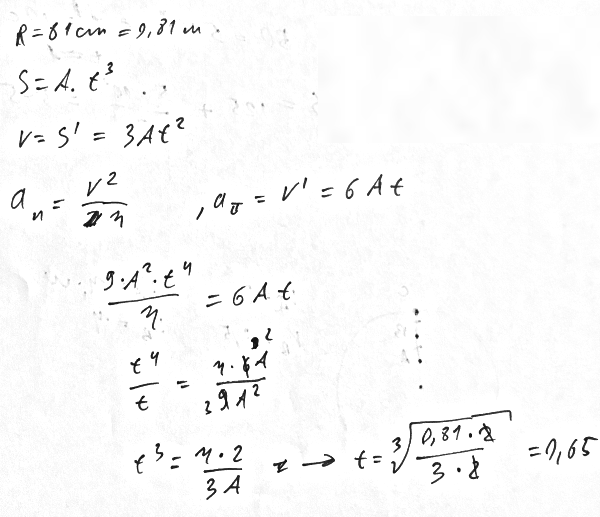 R = 81 cm = 0,81 m.
S = A. t³ . .
v = S' = 3At²
aₙ = v²/r , a_τ = v' = 6 A t
9·A²·t⁴/r = 6 A t
t⁴/t = r·6A/9A² 2 3
t³ = r·2/3A → t = ³√(0,81·2/3·2) = 0,65